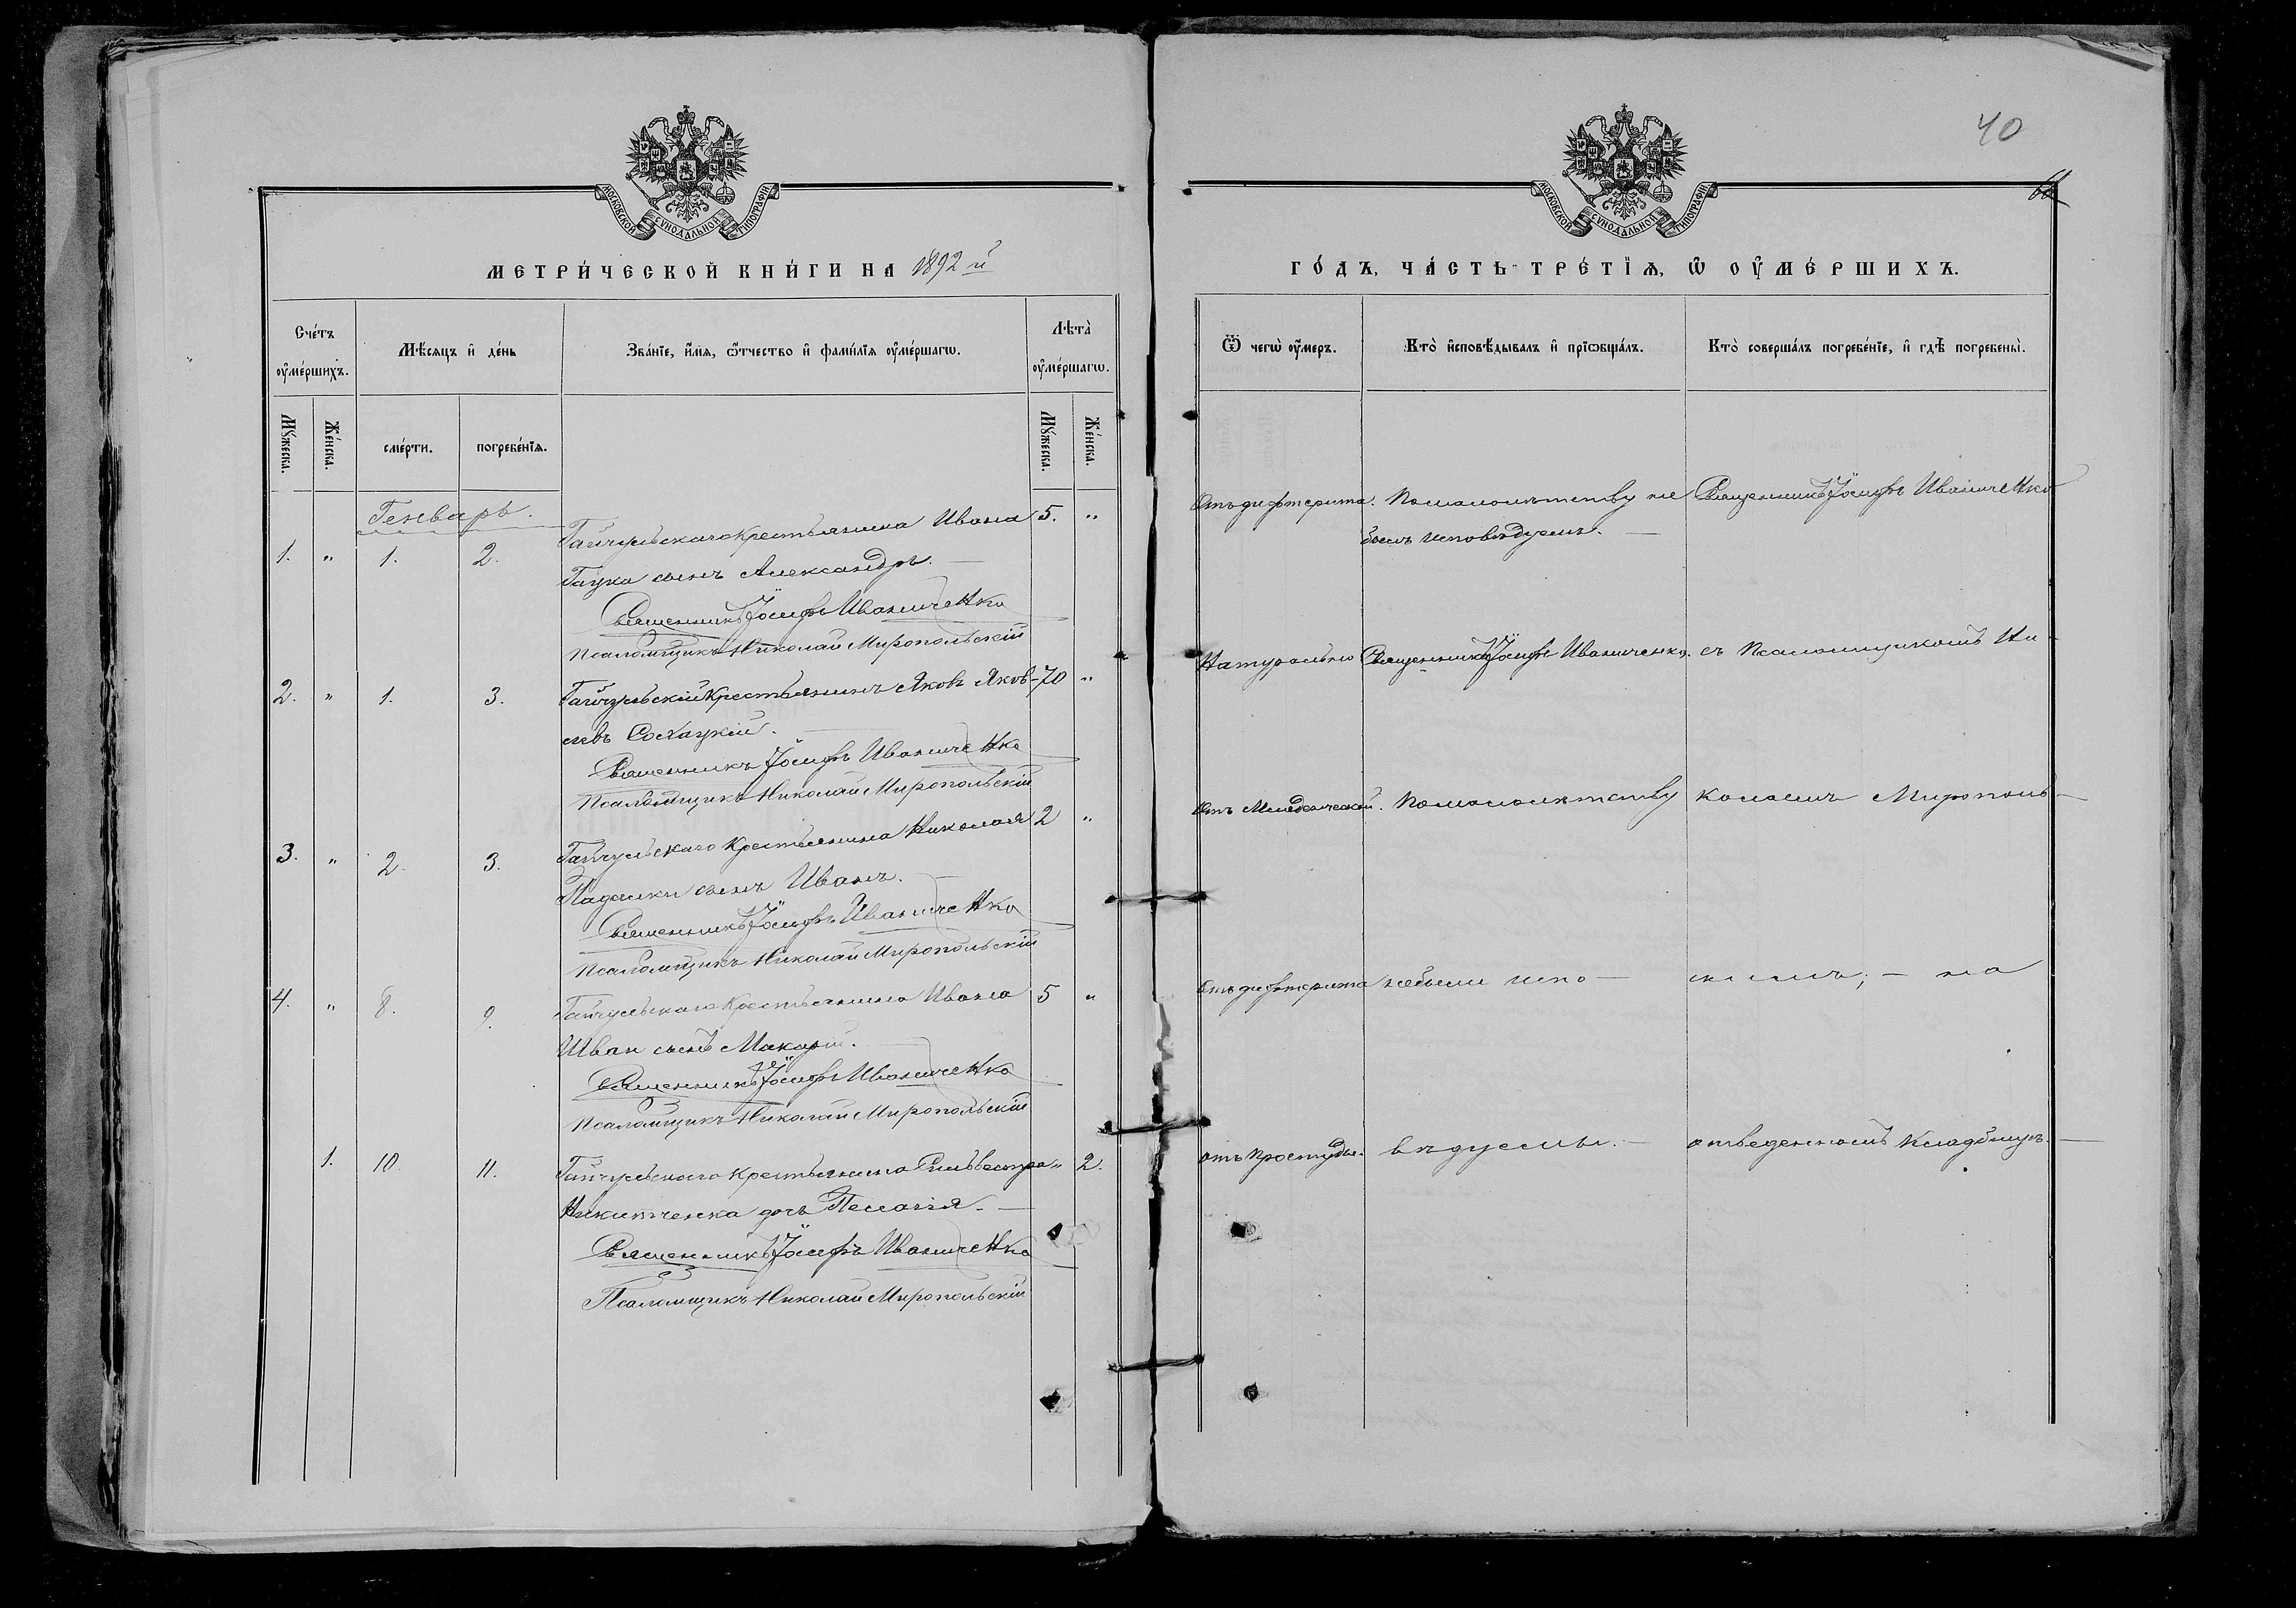 МОСКОВСКОЙ СѴНОДАЛЬНОЙ ТИПОГРАФІИ
МЕТРИ́ЧЕСКОЙ КНИ́ГИ НА 1892 й
Сче́тъ ᲂу҆ме́ршихъ.
Мѣ́сяцъ и҆ де́нь
Зва́нїе, и҆́мѧ, ѻ҆́тчество и҆ фами́лїѧ ᲂу҆ме́ршагѡ.
Лѣта̀ ᲂу҆ме́ршагѡ.
Мꙋ́жеска.
Же́нска.
сме́рти.
погребе́нїѧ.
Мꙋ́жеска.
Же́нска.
Генварь.
1. " 1. 2. Гайчульскаго крестьянина Ивана 5. "
Гаука сынъ Александръ. —
Священникъ Іосифъ Иваниченко
Псаломщикъ Николай Миропольскій
2. " 1. 3. Гайчульскій крестьянинъ Яковъ Яков- 70 "
левъ Сохацкій. —
Священникъ Іосифъ Иваниченко
Псаломщикъ Николай Миропольскій
3. " 2. 3. Гайчульскаго крестьянина Николая 2 "
Падалки сынъ Иванъ. —
Священникъ Іосифъ Иваниченко
Псаломщикъ Николай Миропольскій
4. " 8. 9. Гайчульскаго крестьянина Ивана 5 "
Шван сынъ Макарій. —
Священникъ Іосифъ Иваниченко
Псаломщикъ Николай Миропольскій
1. 10. 11. Гайчульскаго крестьянина Сильвестра " 2.
Никитченка дочь Пелагія. —
Священникъ Іосифъ Иваниченко
Псаломщикъ Николай Миропольскій
40
МОСКОВСКОЙ СѴНОДАЛЬНОЙ ТИПОГРАФІИ
ГО́ДЪ, ЧА́СТЬ ТРЕ́ТЇѦ, Ѡ҆ ОУ҆МЕ́РШИХЪ.
Ѿ чегѡ̀ ᲂу҆́меръ.
Кто̀ и҆сповѣ́дывалъ и҆ прїѡбща́лъ.
Кто̀ соверша́лъ погребе́нїе, и҆ гдѣ̀ погребены̀.
Отъ дифтерита. По малолѣтству не Священникъ Іосифъ Иваниченко
былъ исповѣдуемъ. —
Натурально Священникъ Іосифъ Иваниченко. съ Псаломщикомъ Ни-
Отъ Младенческой. По малолѣтству колаемъ Мирополь-
Отъ дифтерита небыли испо- скимъ; — на
отъ простуды. вѣдуемы. — отведенномъ кладбищѣ. —